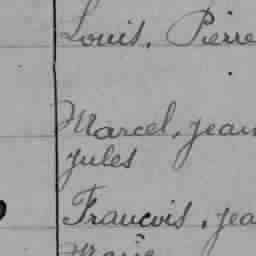 Louis, Pierre
Marcel, Jean
Jules
Francois, Jea
Marie